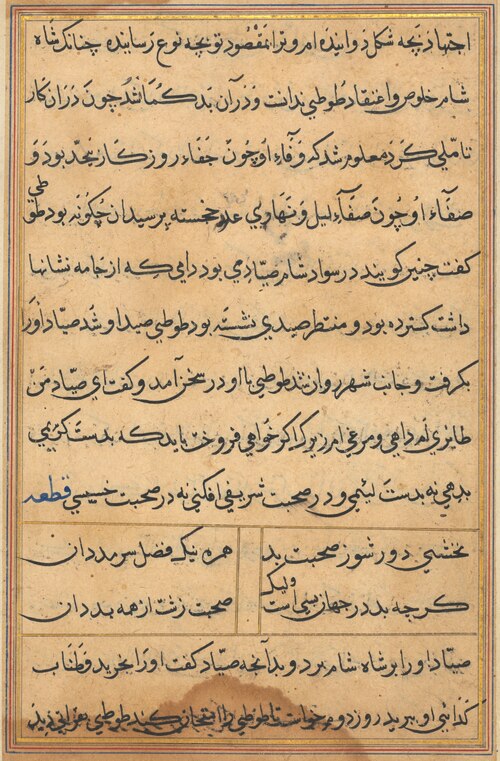 اجتهاد بچه شکل دوانیده ام و ترا بمقصود تو بچه نوع رسانیده چنانکه شاه
شام خلوص و اعتقاد طوطی ندانست و در آن بد کمان شد چون در آن کار
تاملی کرد معلوم شد که وفاء او چون جفاء روزکار بیحد بود و
صفاء او چون صفاء لیل و نهار بی عدد خجسته پرسید آن چکونه بود طوطی
کفت چنین کویند در سواد شام صیادی بود دامی که از جامه نشانها
داشت کسترده بود و منتظر صیدی نشسته بود طوطی صید او شد صیاد او را
بکرفت و جانب شهر روان شد طوطی با او در سخن آمد و کفت ای صیاد من
طائری ام داهی و مرغی ام زیرک اکر خواهی فروخت باید که بدست کریمی
بدهی نه بدست لئیمی و در صحبت شریفی افکنی نه در صحبت خسیسی قطعه
نخشبی دور شو ز صحبت بد همره نیک فضل سرمد دان
کرچه بد در جهان بسی است ولیک صحبت زشت از همه بد دان
صیاد او را بر شاه شام برد و بدآنچه صیاد کفت او را بخرید قضا را
روز دوم خواست تا طوطی را امتحان کند طوطی